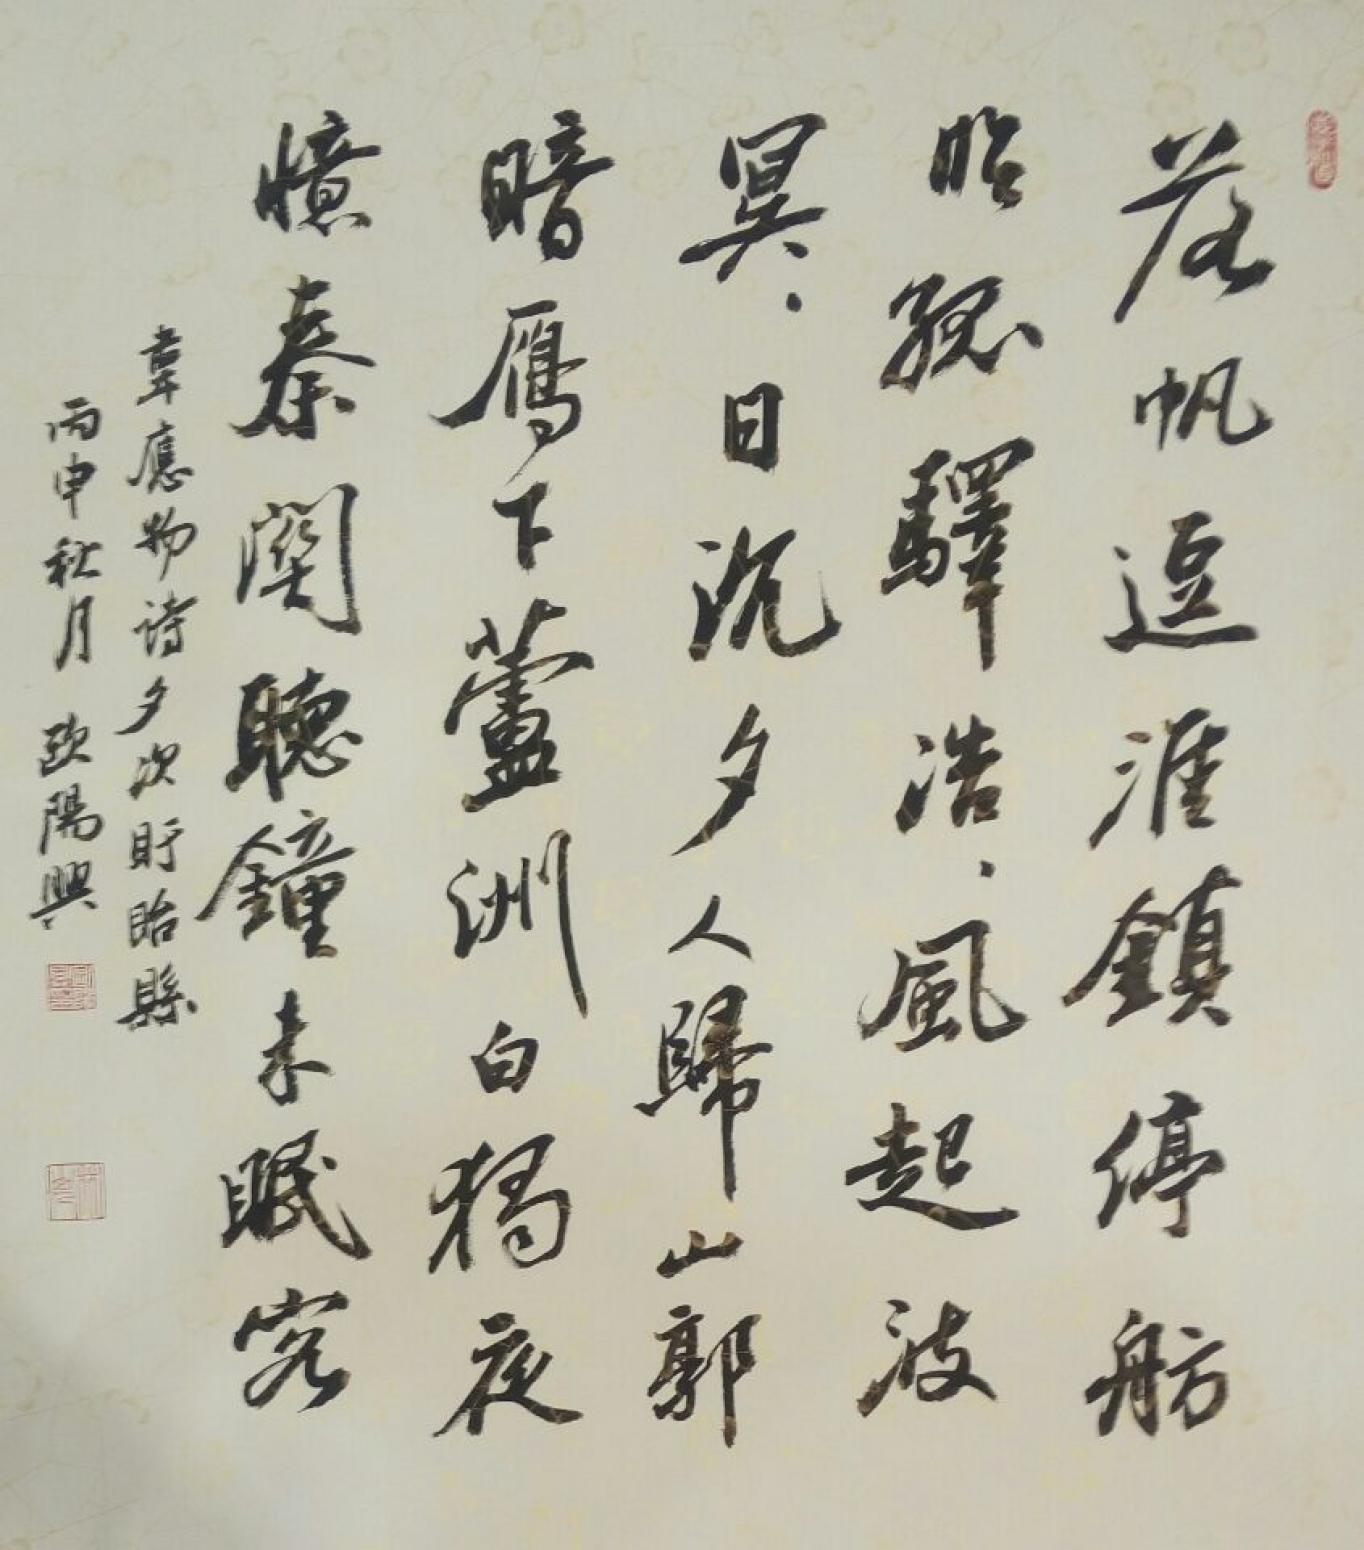 落帆逗淮鎮停舫
臨孤驛浩、風起波
冥、日沉夕人歸山郭
暗雁下蘆洲白獨夜
憶秦關聽鐘未眠客
韋應物詩夕次盱眙縣
丙申秋月 歐陽興